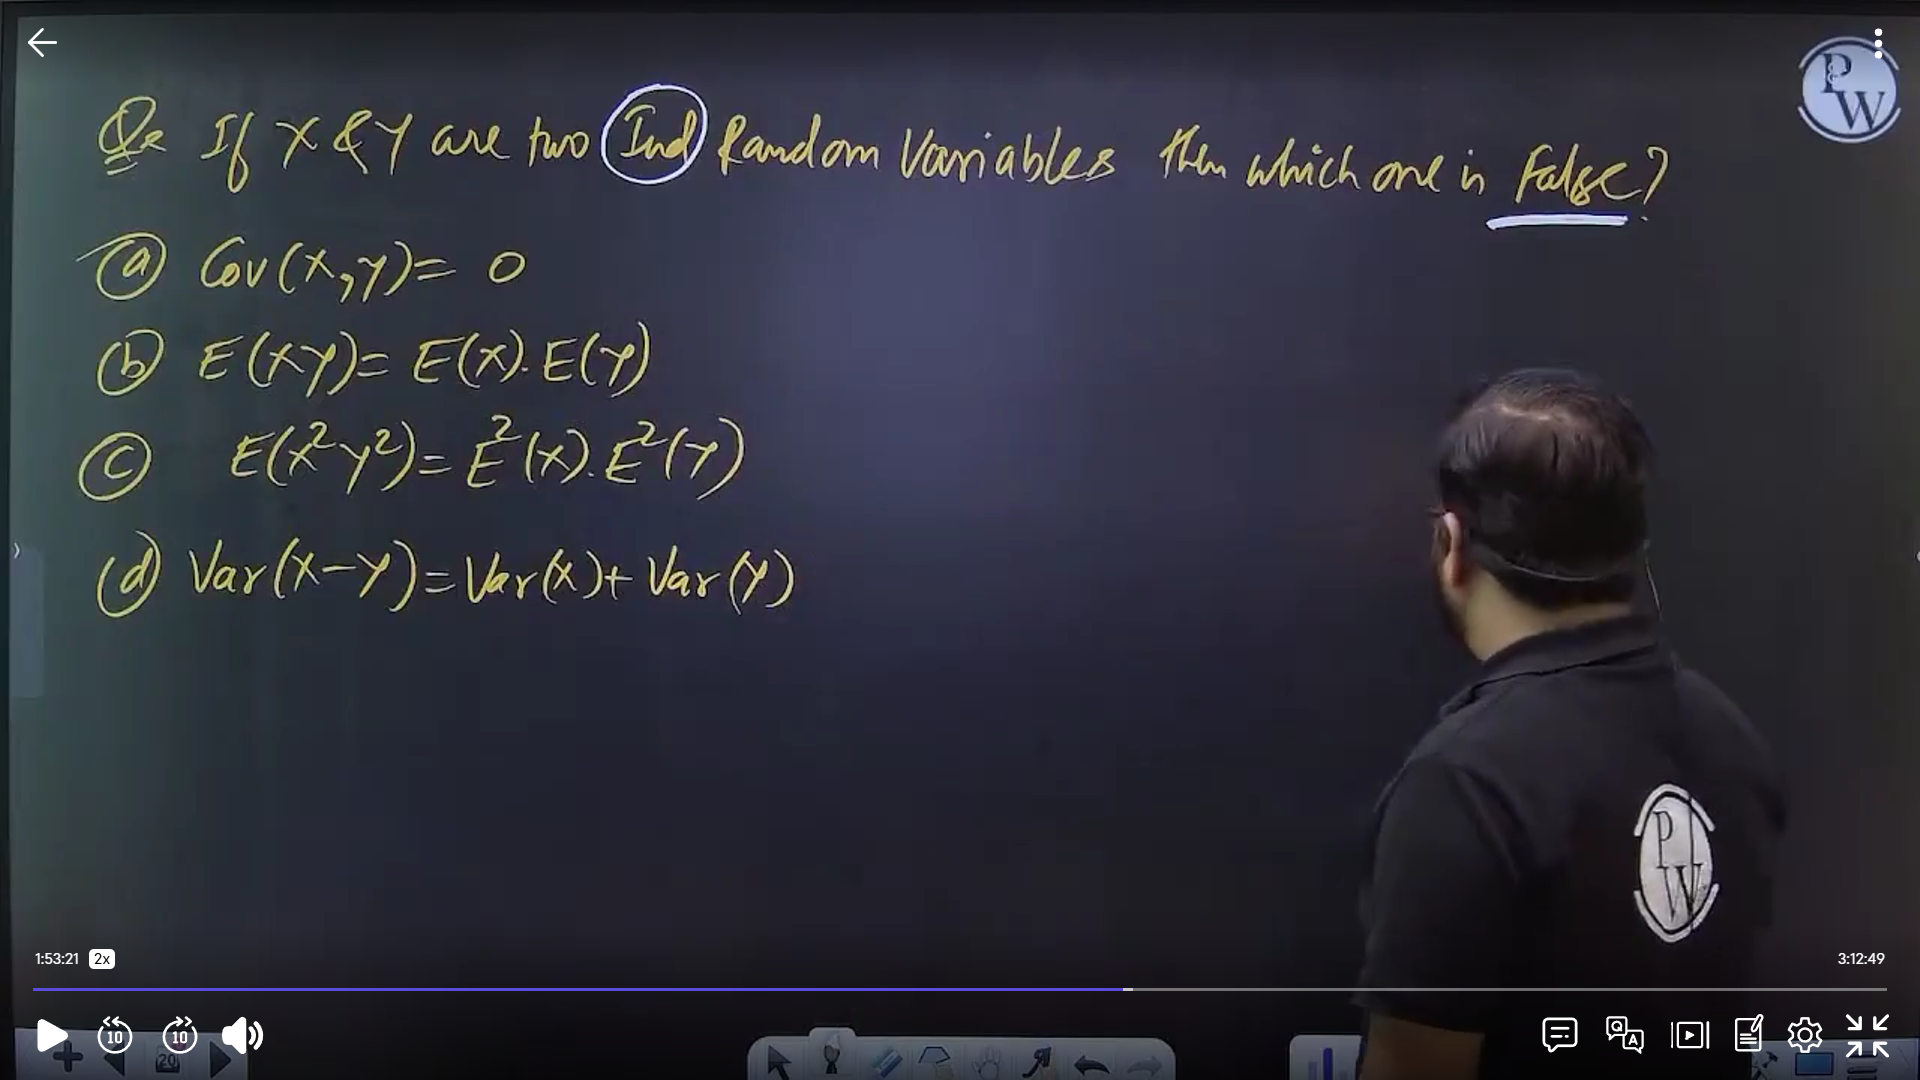 PW
Qs If X & Y are two Ind Random Variables then which one is False?
(a) Cov(x,y)= 0
(b) E(XY)= E(X). E(Y)
(c) E(X²Y²)= E²(X). E²(Y)
(d) Var(X-Y)= Var(X)+ Var(Y)
PW
1:53:21 2x 3:12:49
10 10 Q A
20